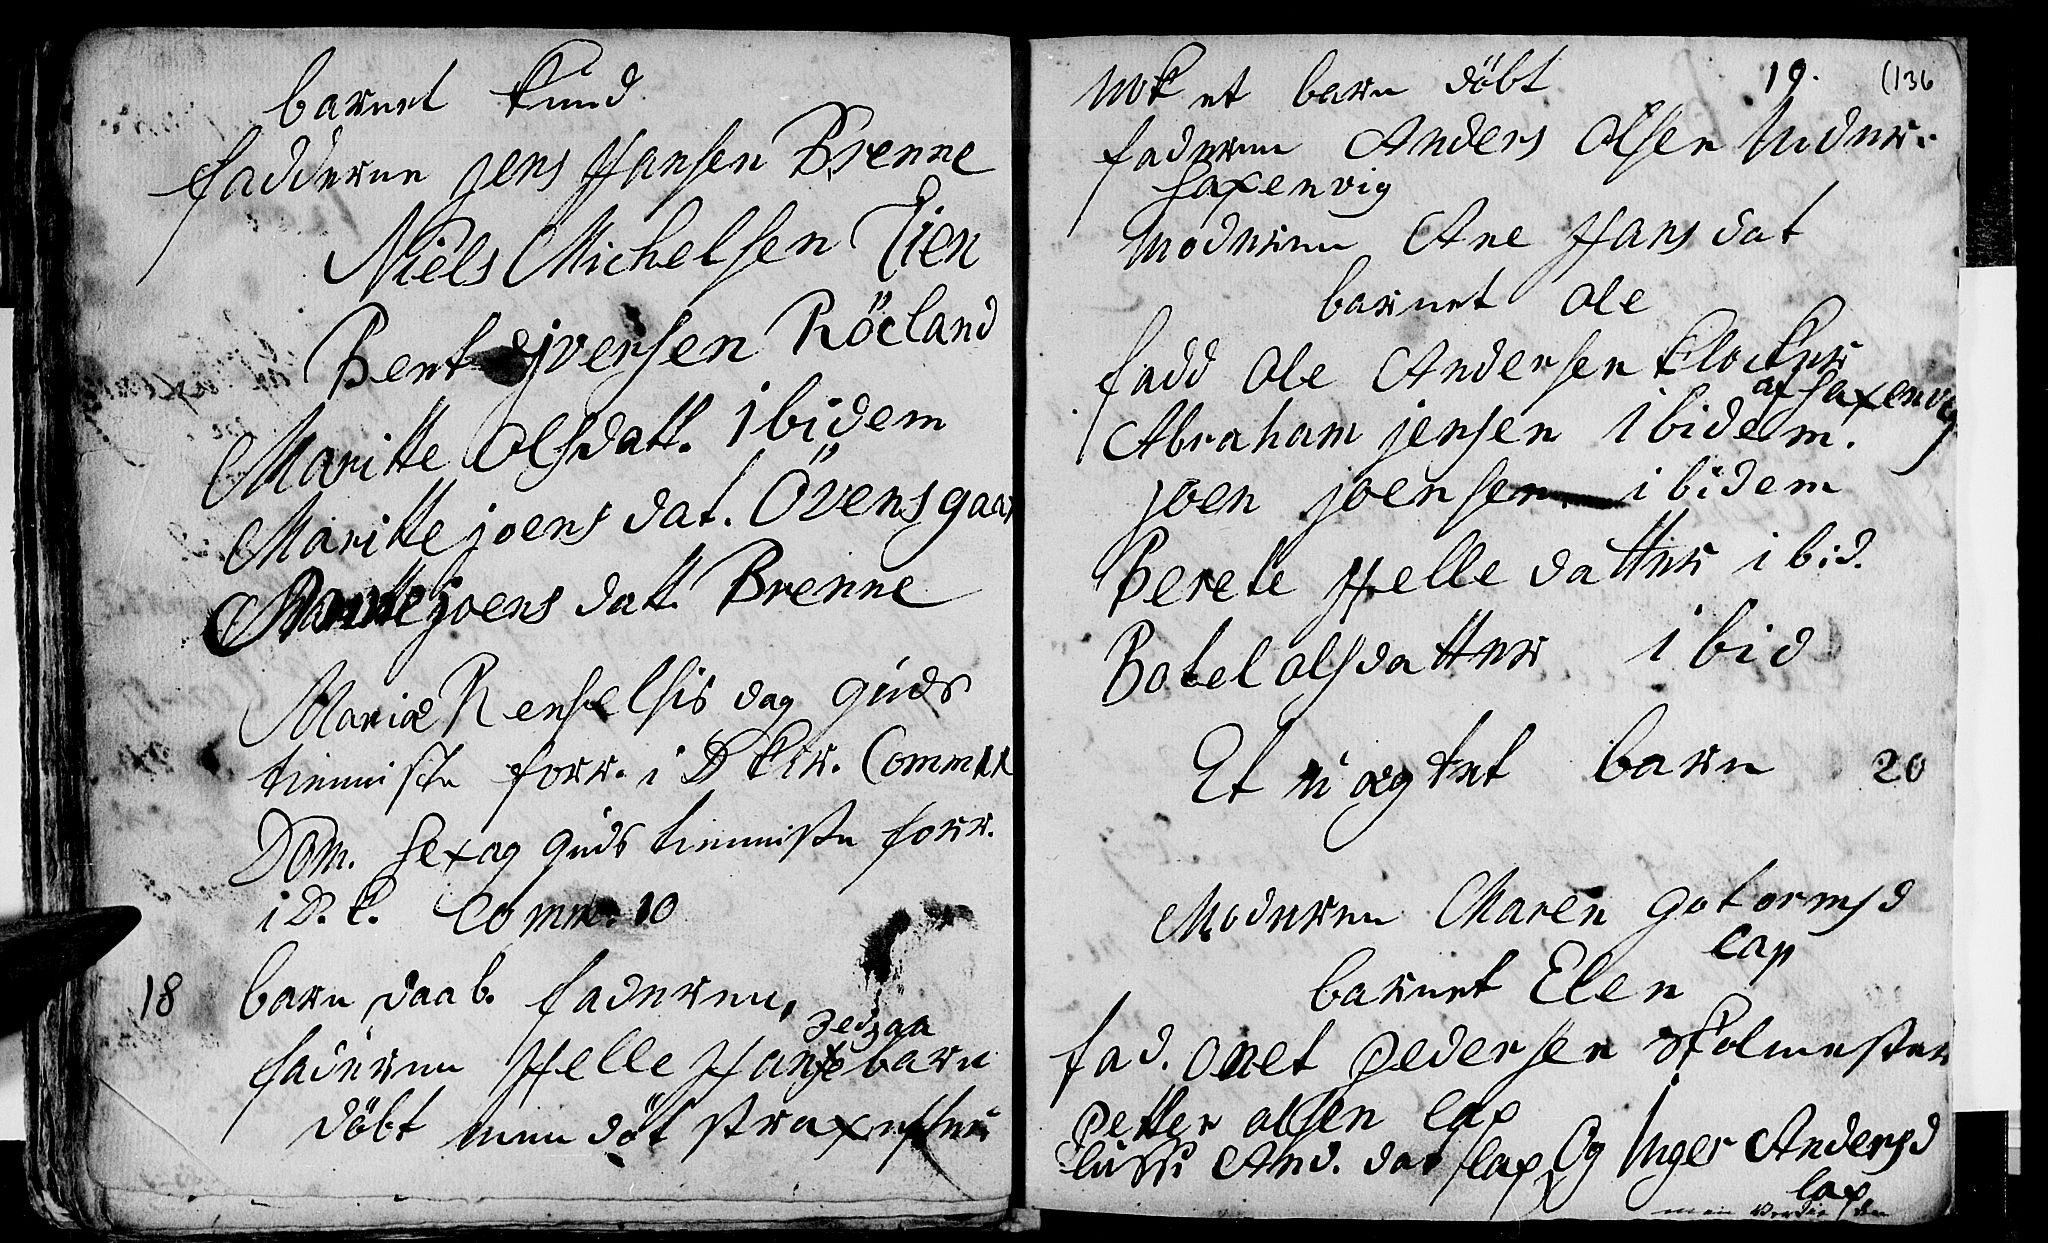 barnet Knud
fadderne jens Hansen Brenne
Niels Michelsen Lien
Bent jversen Röeland
Maritte Olsdatt. Ibidem
Maritte joens dat. Övensgaar
joens datt. Brenne
Mariæ Renselsis dag guds
tienniste forr. i D Kir. Comm
Dom. Sexag guds tienniste forr.
i D. K. Comm. 10
18 barn daab. faderenn,
faderenn Helle Hans barn
döbt men döt strax efter
Nok et barn döbt 19. (136
faderenn Anders Olsen Neder-
Saxenvig
Moderenn Ane Hans dat
barnet Ole
fadd Ole Andersen Klocker
af Saxenvig
Abraham jensen Ibidem.
joen joensen. ibidem
Berete Helle datter ibid.
Botel olsdatter Ibid
Et uægtet barn 20
Moderenn Maren gotormsd
Lap
barnet Elen
fad. Onet pedersen Skolmester
petter olsen lap
And. dat lap Og Inger Andersd
lap